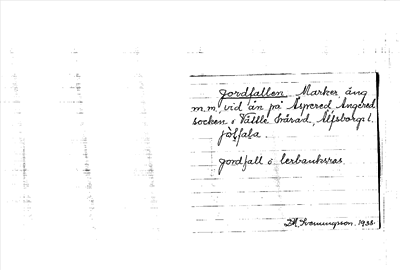 Jordfallen. Marker, äng
m.m. vid ån på Äspered Angered
socken i Vättle härad, Älfsborgs l.
jòļfala.
Jordfall = lerbanksras.
Svenningsson. 1935.